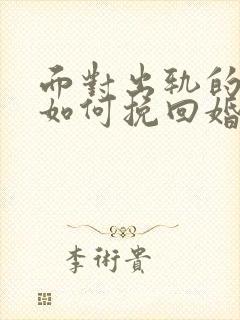 而對出軌的
如何挽回婚
李術貴